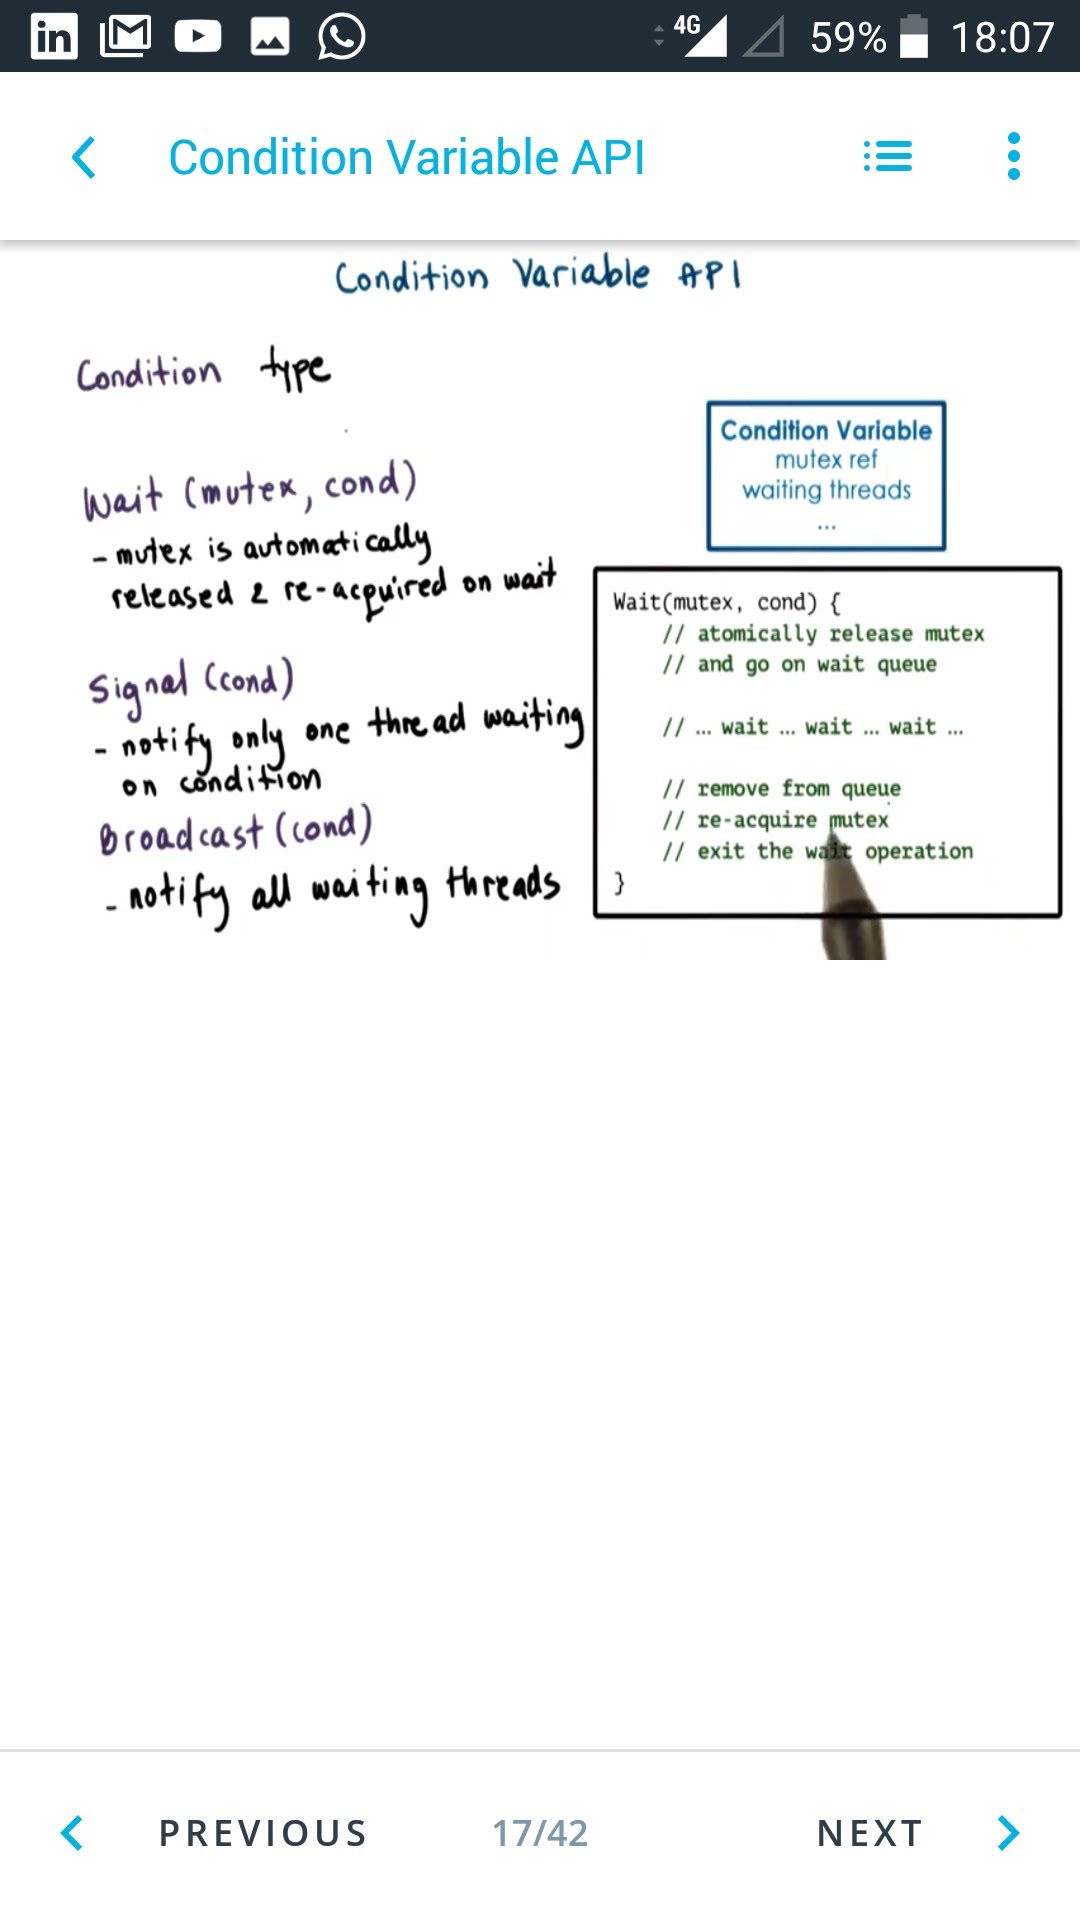 in
4G
59%
18:07
Condition Variable API
Condition Variable API
Condition type
Wait (mutex, cond)
- mutex is automatically
released & re-acquired on wait
Signal (cond)
- notify only one thread waiting
on condition
Broadcast (cond)
- notify all waiting threads
Condition Variable
mutex ref
waiting threads
...
Wait(mutex, cond) {
// atomically release mutex
// and go on wait queue
// ... wait ... wait ... wait ...
// remove from queue
// re-acquire mutex
// exit the wait operation
}
PREVIOUS
17/42
NEXT